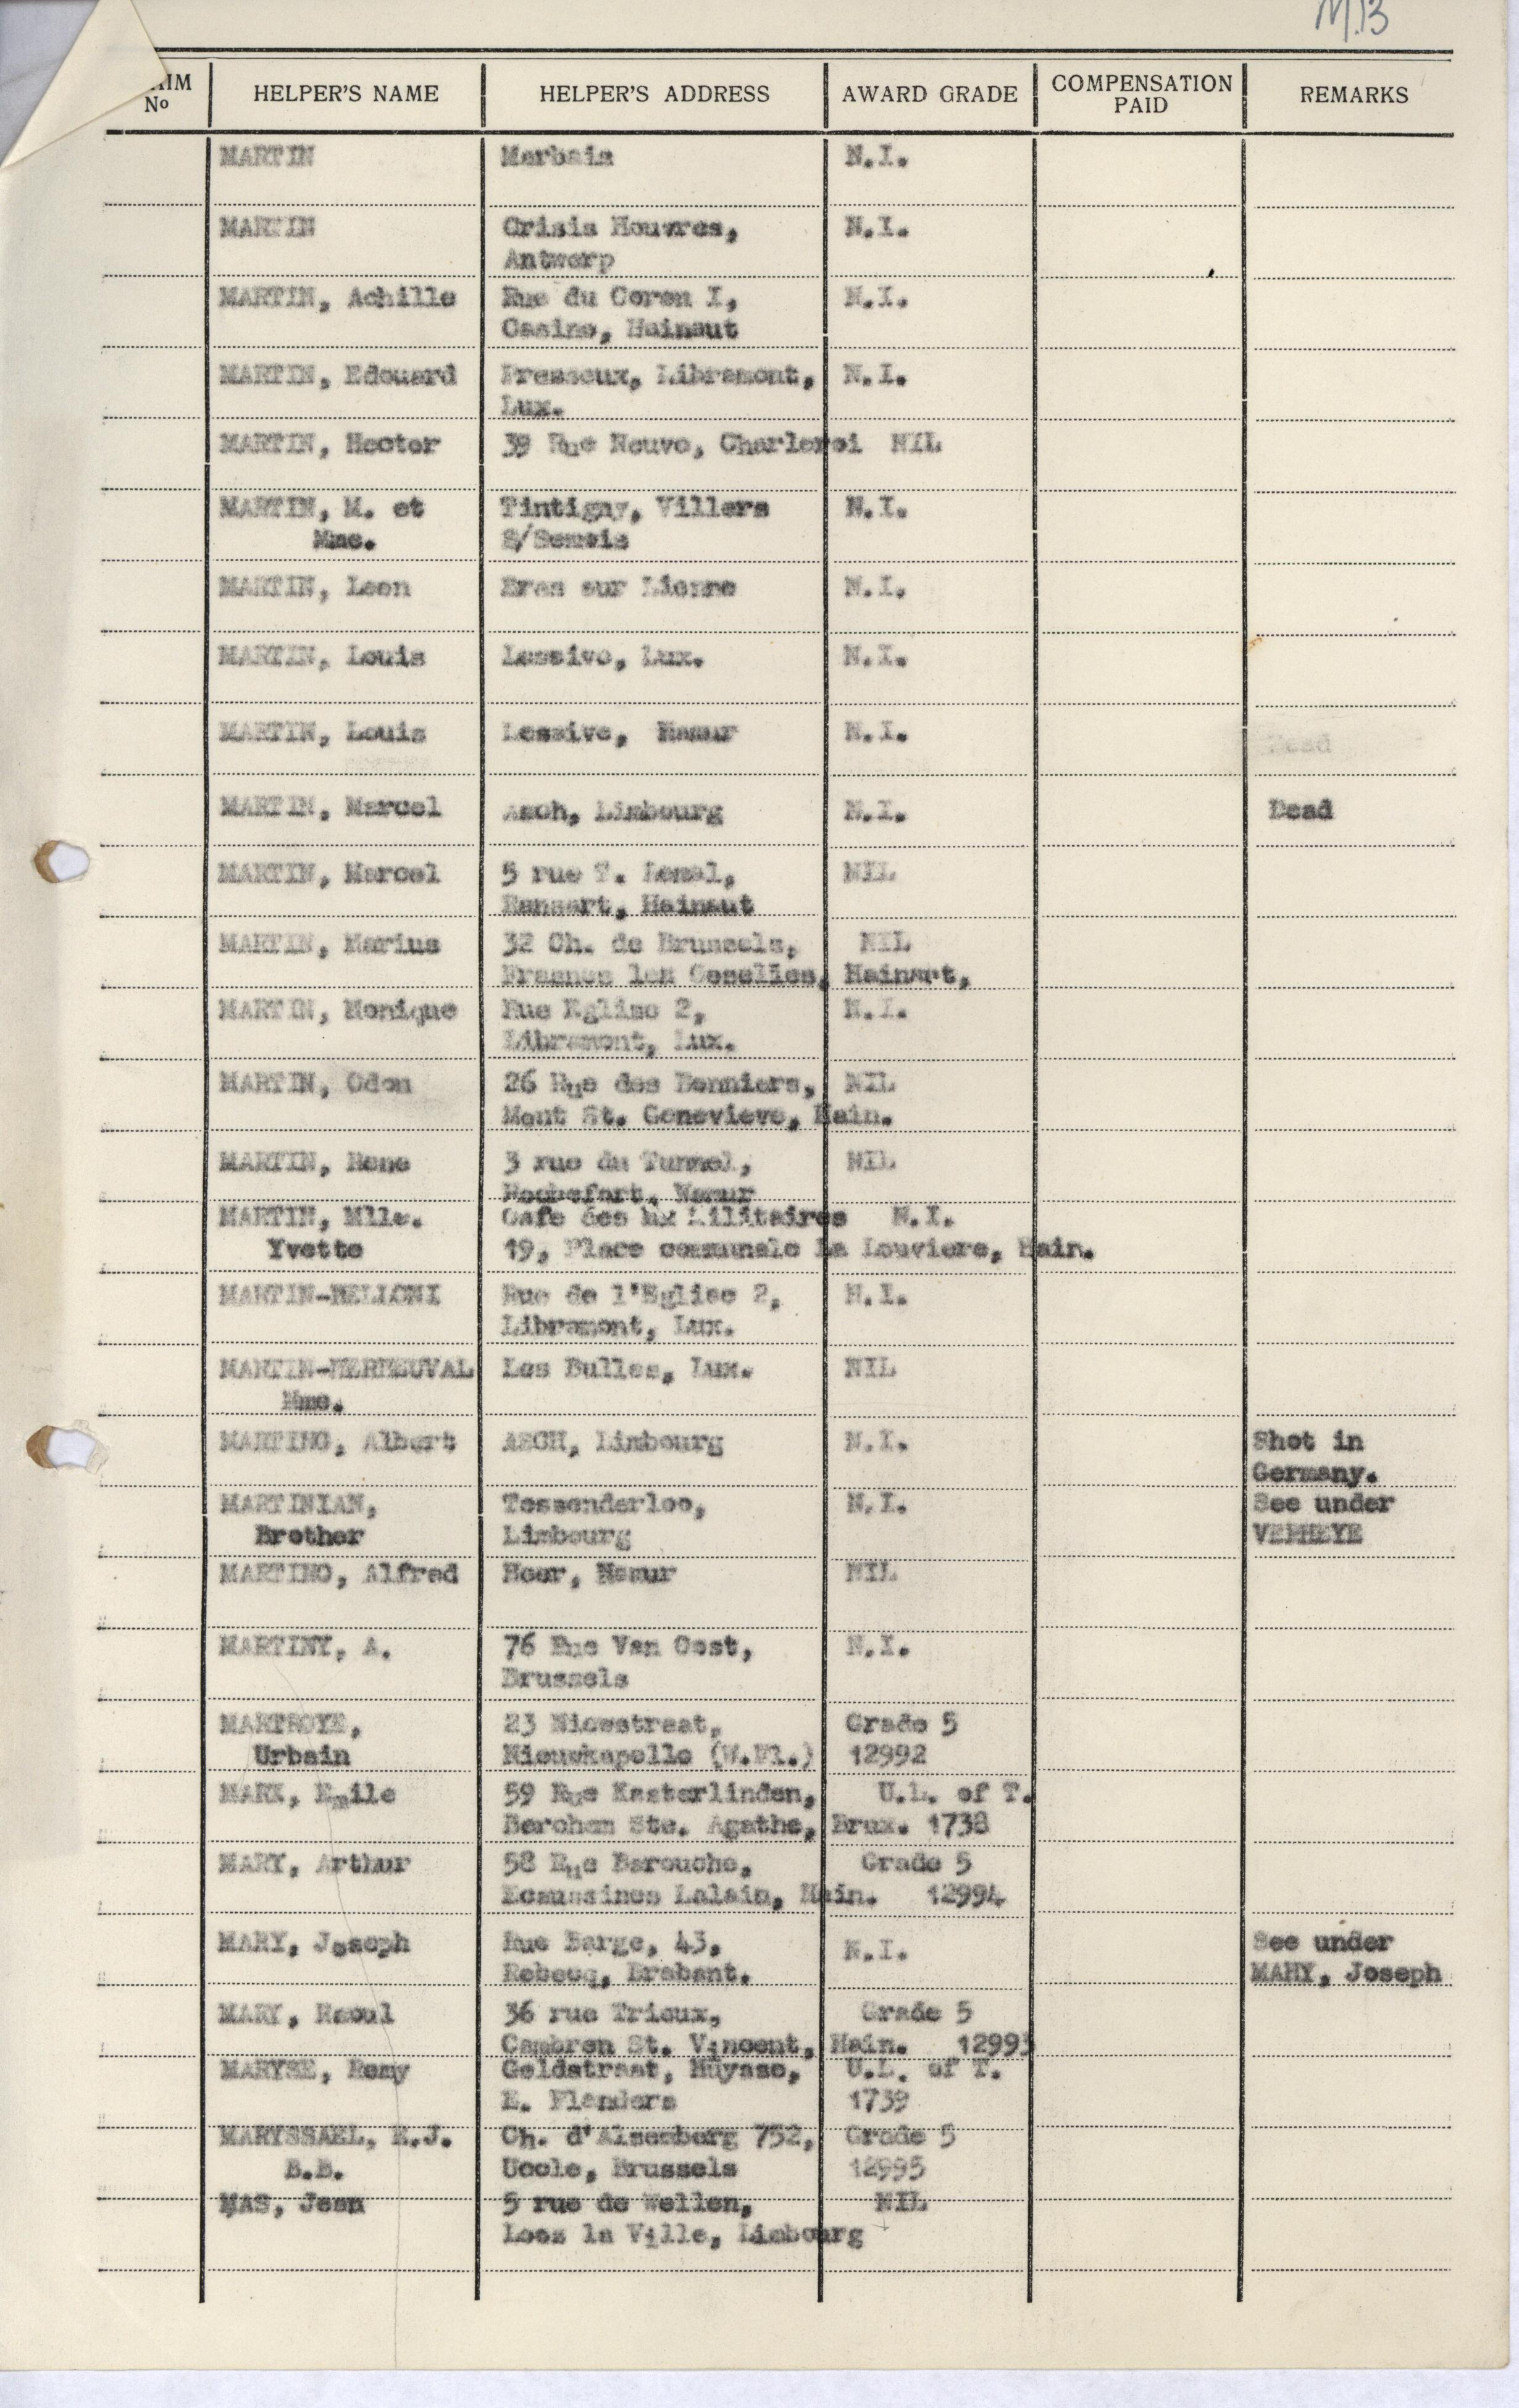 M.13
AIM No HELPER'S NAME HELPER'S ADDRESS AWARD GRADE COMPENSATION PAID REMARKS
MARTIN Marbais N.I.
MARTIN Crisis Houvres, N.I.
Antwerp
MARTIN, Achille Rue du Coron I, N.I.
Casino, Hainaut
MARTIN, Edouard Presseux, Libramont, N.I.
Lux.
MARTIN, Hector 39 Rue Neuve, Charleroi NIL
MARTIN, M. et Tintigny, Villers N.I.
Mme. S/Semois
MARTIN, Leon Bras sur Lienne N.I.
MARTIN, Louis Lessive, Lux. N.I.
MARTIN, Louis Lessive, Namur N.I. Dead
MARTIN, Marcel Asch, Limbourg N.I. Dead
MARTIN, Marcel 5 rue T. Lemal, NIL
Ransart, Hainaut
MARTIN, Marius 32 Ch. de Brussels, NIL
Frasnes lez Goselies, Hainaut,
MARTIN, Monique Rue Eglise 2, N.I.
Libramont, Lux.
MARTIN, Odon 26 Rue des Bonniers, NIL
Mont St. Genevieve, Hain.
MARTIN, Rene 3 rue du Tunnel, NIL
Rochefort, Namur
MARTIN, Mlle. Cafe des Ex Militaires N.I.
Yvette 19, Place communale La Louviere, Hain.
MARTIN-BELLONI Rue de l'Eglise 2, N.I.
Libramont, Lux.
MARTIN- Les Bulles, Lux. NIL
Mme.
MARTING, Albert ASCH, Limbourg N.I. Shot in
Germany.
MARTINIAN, Tessenderloo, N.I. See under
Brother Limbourg VERHEYE
MARTINO, Alfred Heer, Namur NIL
MARTINY, A. 76 Rue Van Oost, N.I.
Brussels
MARTROYE, 23 Niewstraat, Grade 5
Urbain Nieuwkapelle (W.Fl.) 12992
MARX, Emile 59 Rue Kasterlinden, U.L. of T.
Berchem Ste. Agathe, Brux. 1738
MARY, Arthur 58 Rue Barouche, Grade 5
Ecaussines Lalain, Hain. 12994
MARY, Joseph Rue Barge, 43, N.I. See under
Rebecq, Brabant. MAHY, Joseph
MARY, Raoul 36 rue Trieux, Grade 5
Cambron St. Vincent, Hain. 12993
MARYSE, Remy Geldstraat, Huysse, U.L. of T.
E. Flanders 1739
MARYSSAEL, E.J. Ch. d'Alsemberg 752, Grade 5
B.B. Uccle, Brussels 12995
MAS, Jean 5 rue de Wellen, NIL
Looz la Ville, Limbourg